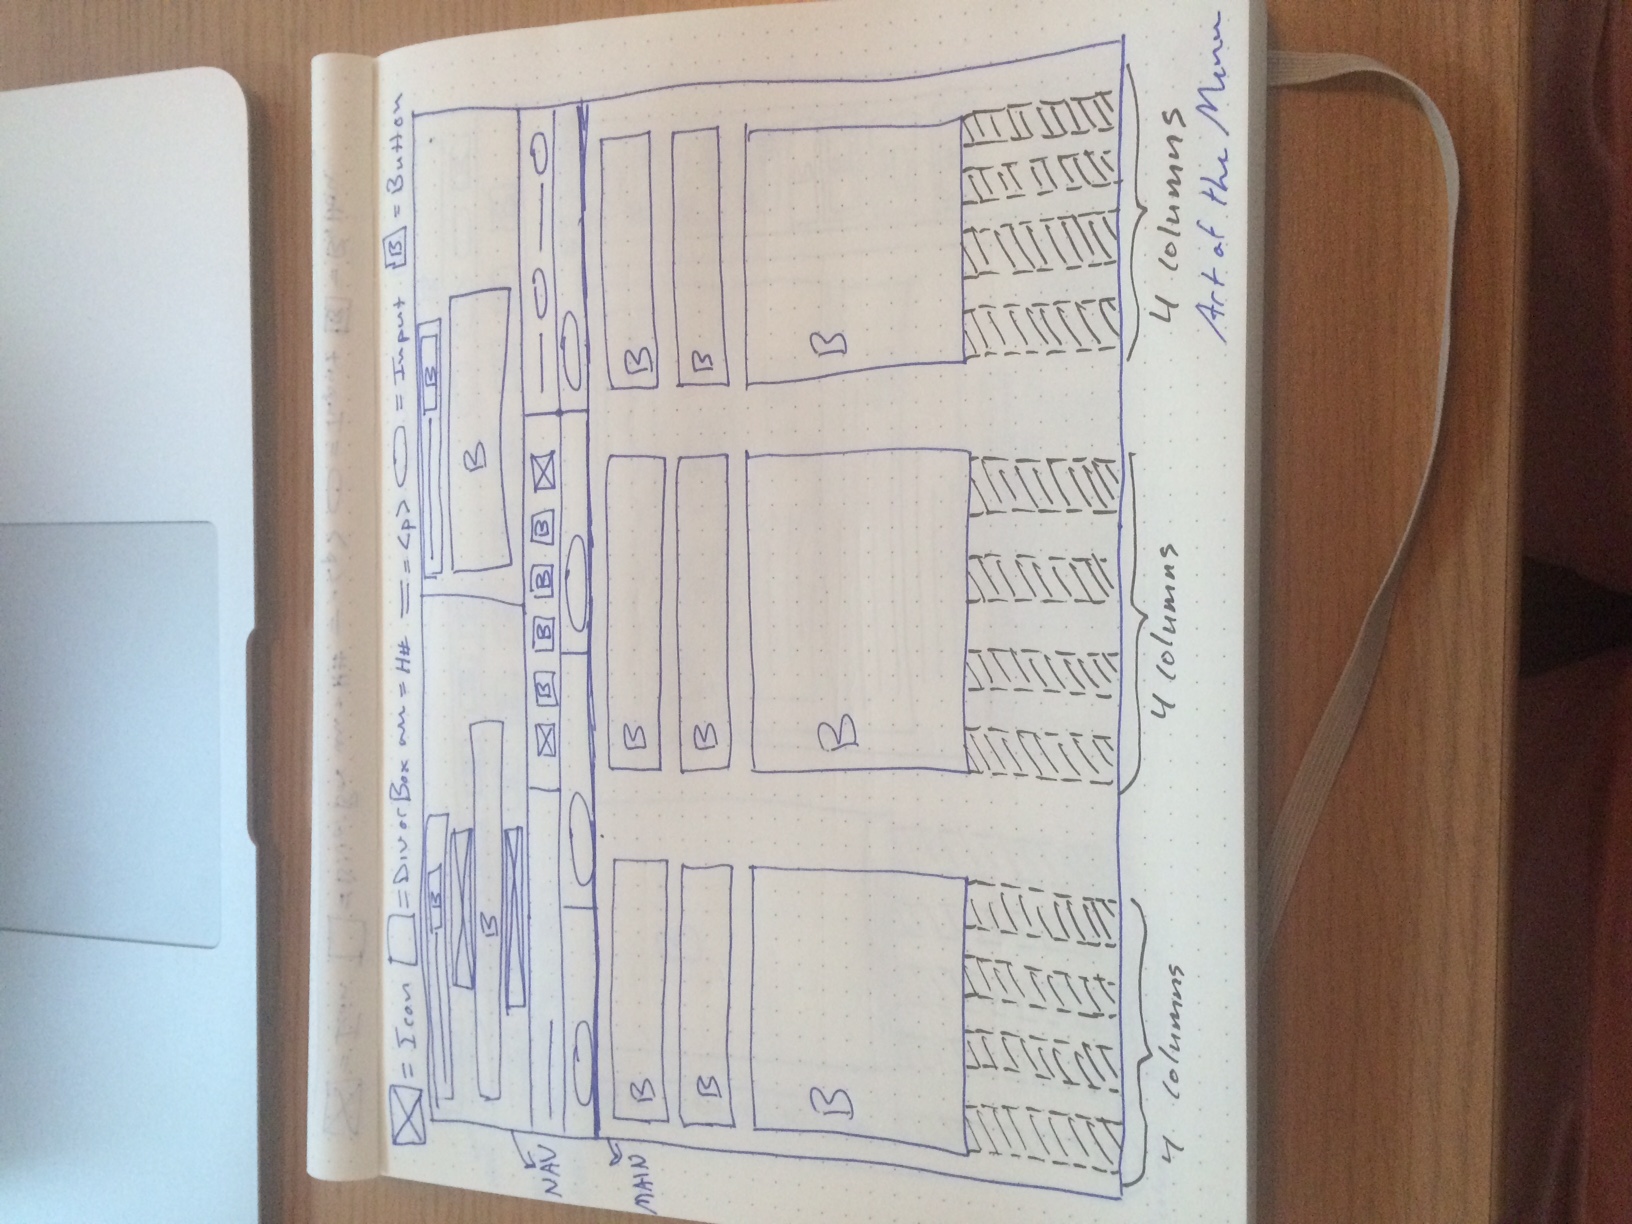 = Icon = Div or Box = H# = <p> = Input B = Button
B B
B B
NAV
B B B B
MAIN
B B B
B B B
B B B
4 columns 4 columns 4 columns
Art of the Menu